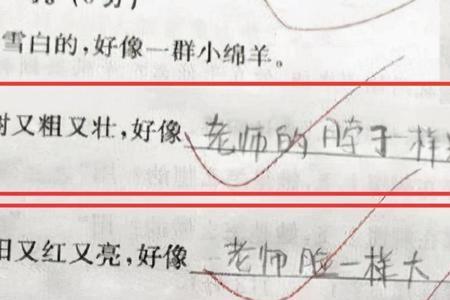 雪白的,好像一群小绵羊。
树又粗又壮,好像老师的脖子一样
阳又红又亮,好像老师脸一样大